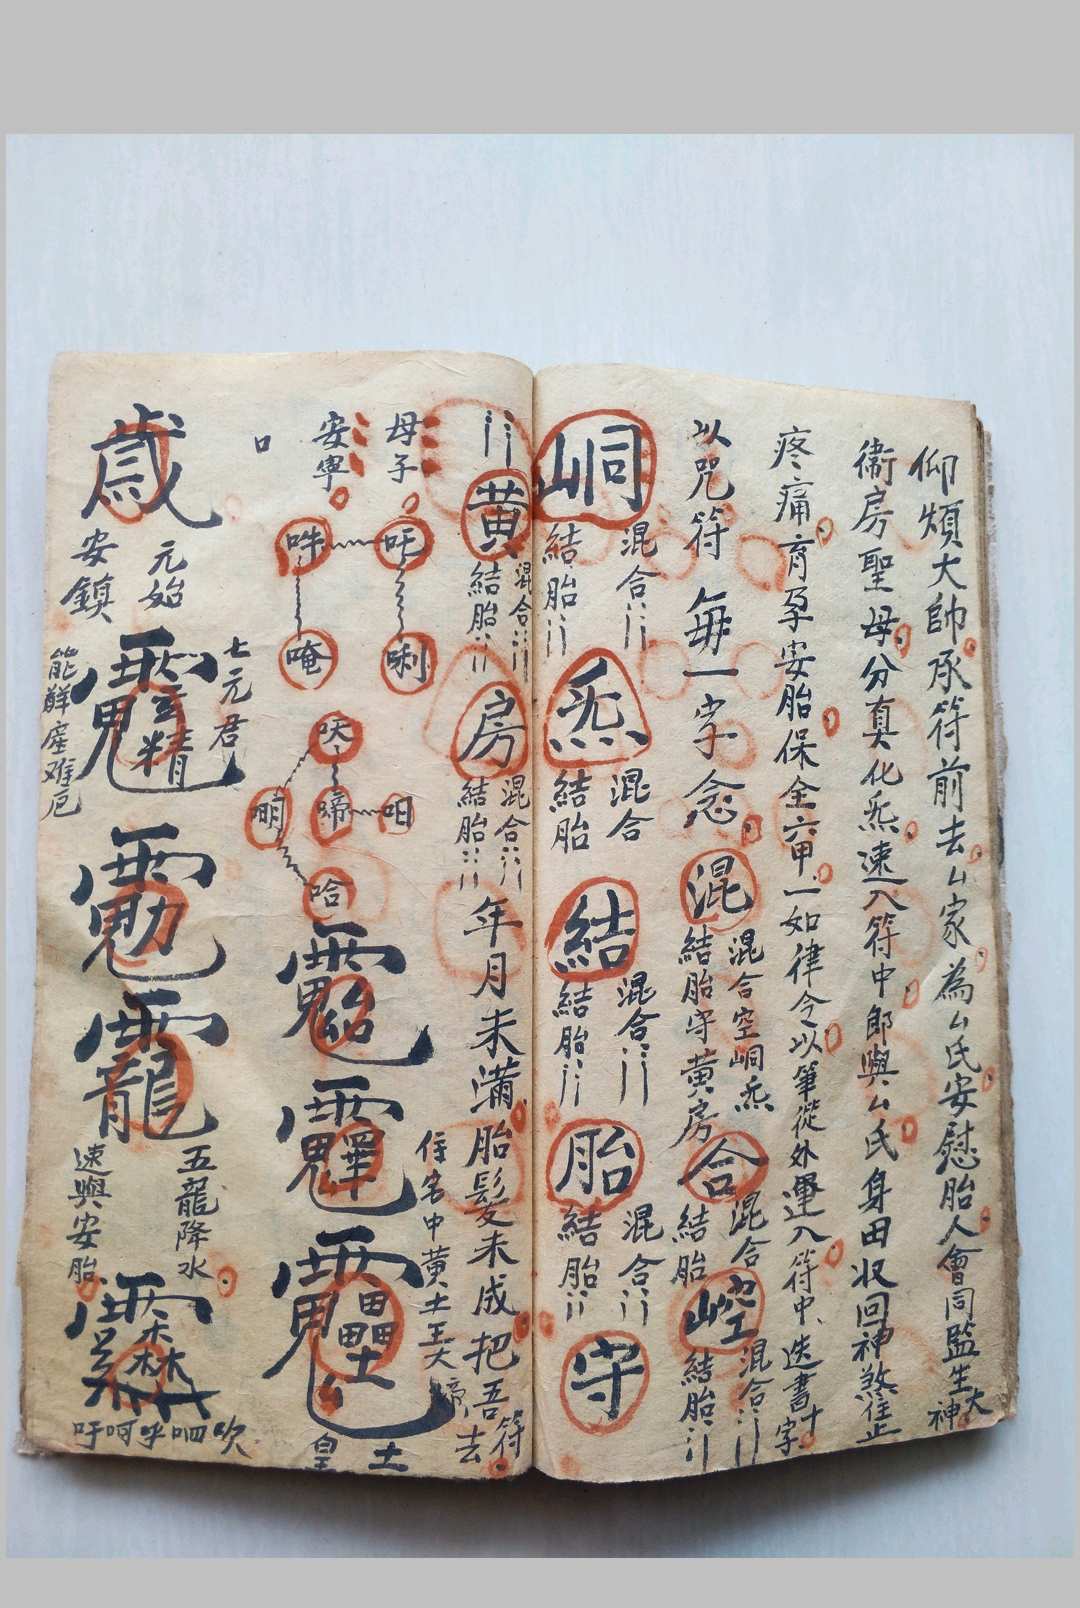 仰煩大帥承符前去ム家為ム氏安慰胎人會同監生大神
衞房聖母分真化炁速入符中郎與ム氏身田収回神煞准止
疼痛育孕安胎保全六甲一如律令以筆從外運入符中迭書十字
以咒符每一字念混
混合空峒炁
結胎守黄房
合
混合
結胎
崆
混合
結胎
峒
混合
結胎
炁
混合
結胎
結
混合
結胎
胎
混合
結胎
守
黄
混合
結胎
房
混合
結胎
年月未満胎髪未成把吾符去
母子
安寧
吽
唵
唎
明
啼
呾
哈
住名中黄土
土
皇
口
七元君
元始
安鎮
能解産难厄
五龍降水
速與安胎
吹呬呼呵吁